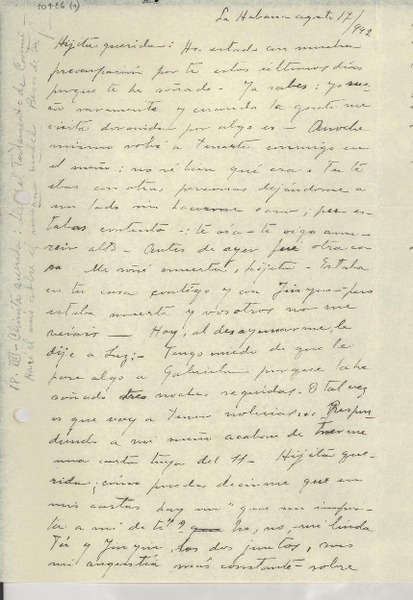 10426 (1)
La Habana agosto 17/942
Hijita querida: He estado con mucha
preocupación por ti estos últimos días
porque te he soñado. — Ya sabes: yo sue-
ño raramente y cuando la gente me
visita dormida por algo es — Anoche
mismo volví a tenerte conmigo en
el sueño: no sé bien qué era. Tú te
ibas con otras personas dejándome a
un lado sin hacerme caso; pero es-
tabas contenta —: te oía y te veía aun
reir alto. Antes de ayer fué otra co-
sa. Me soñé muerta, hijita. Estaba
en tu casa contigo y con Yinyin — pero
estaba muerta y vosotros no me
veíais — Hoy, al desayunarme, le
dije a Luz: — Tengo miedo de que le
pase algo a Gabriela porque la he
soñado tres noches seguidas. O tal vez
es que voy a tener noticias... Respon-
diendo a mi sueño acaban de traerme
una carta tuya del 11 — Hijita que-
rida; ¿cómo puedes decirme que en
mis cartas hay un "qué me impor-
ta a mí de ti"? No, no, mi linda
Tú y Yinyin, los dos juntos, sois
mi angustia más constante sobre
18. VIII — Chiquita querida: